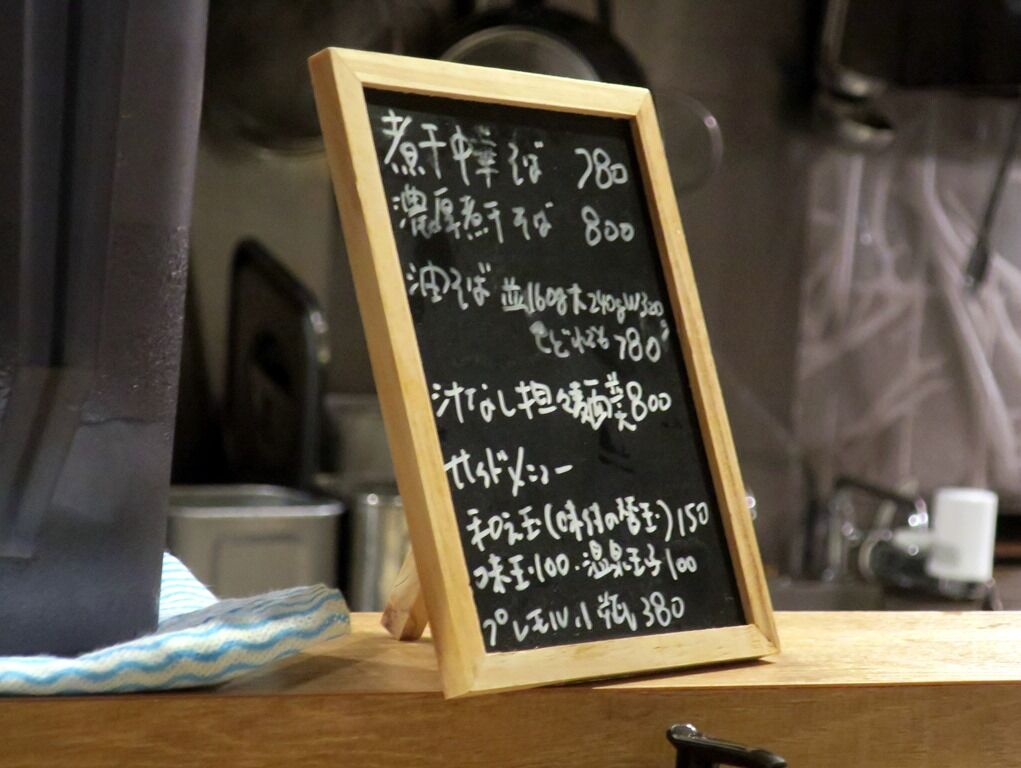 煮干中華そば 780
濃厚煮干そば 800
油そば 並160g大240gW320g
どれでも780
汁なし担々麺 800
サイドメニュー
和え玉(味付の替玉)150
味玉・100・温泉玉子100
プレモル小瓶380